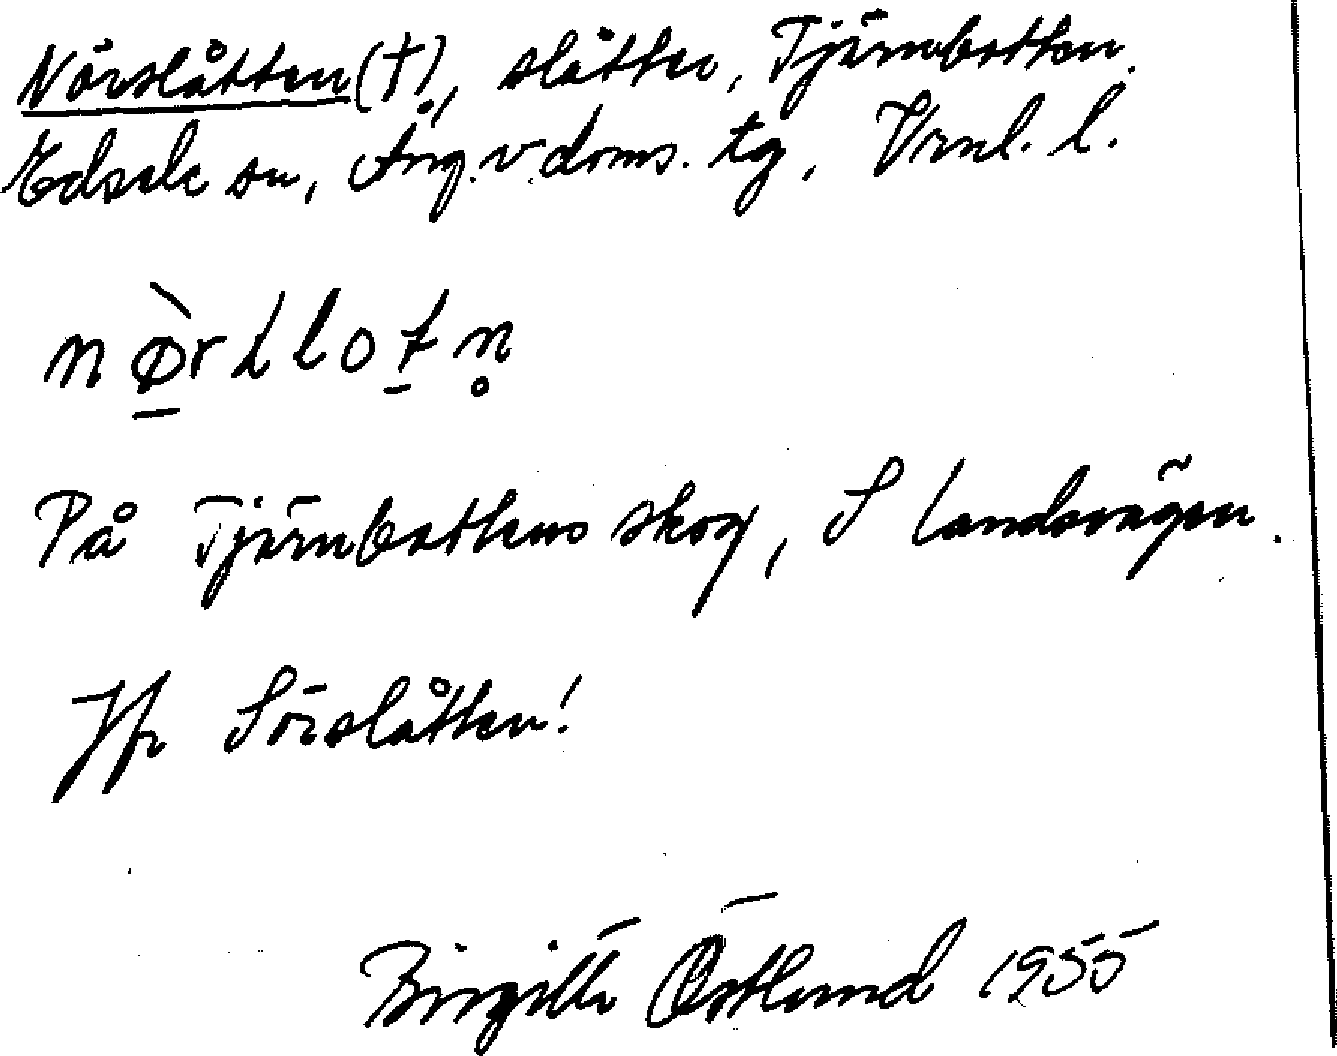 Nörslåtten (†), slåtter, Tjärnbotten.
Edsele sn, Ång. v. doms. tg, Vrnl. l.
nø̀rʟlotn̥
På Tjärnbottens skog, S landsvägen.
Jfr Sörslåtten!
Birgitta Östlund 1955